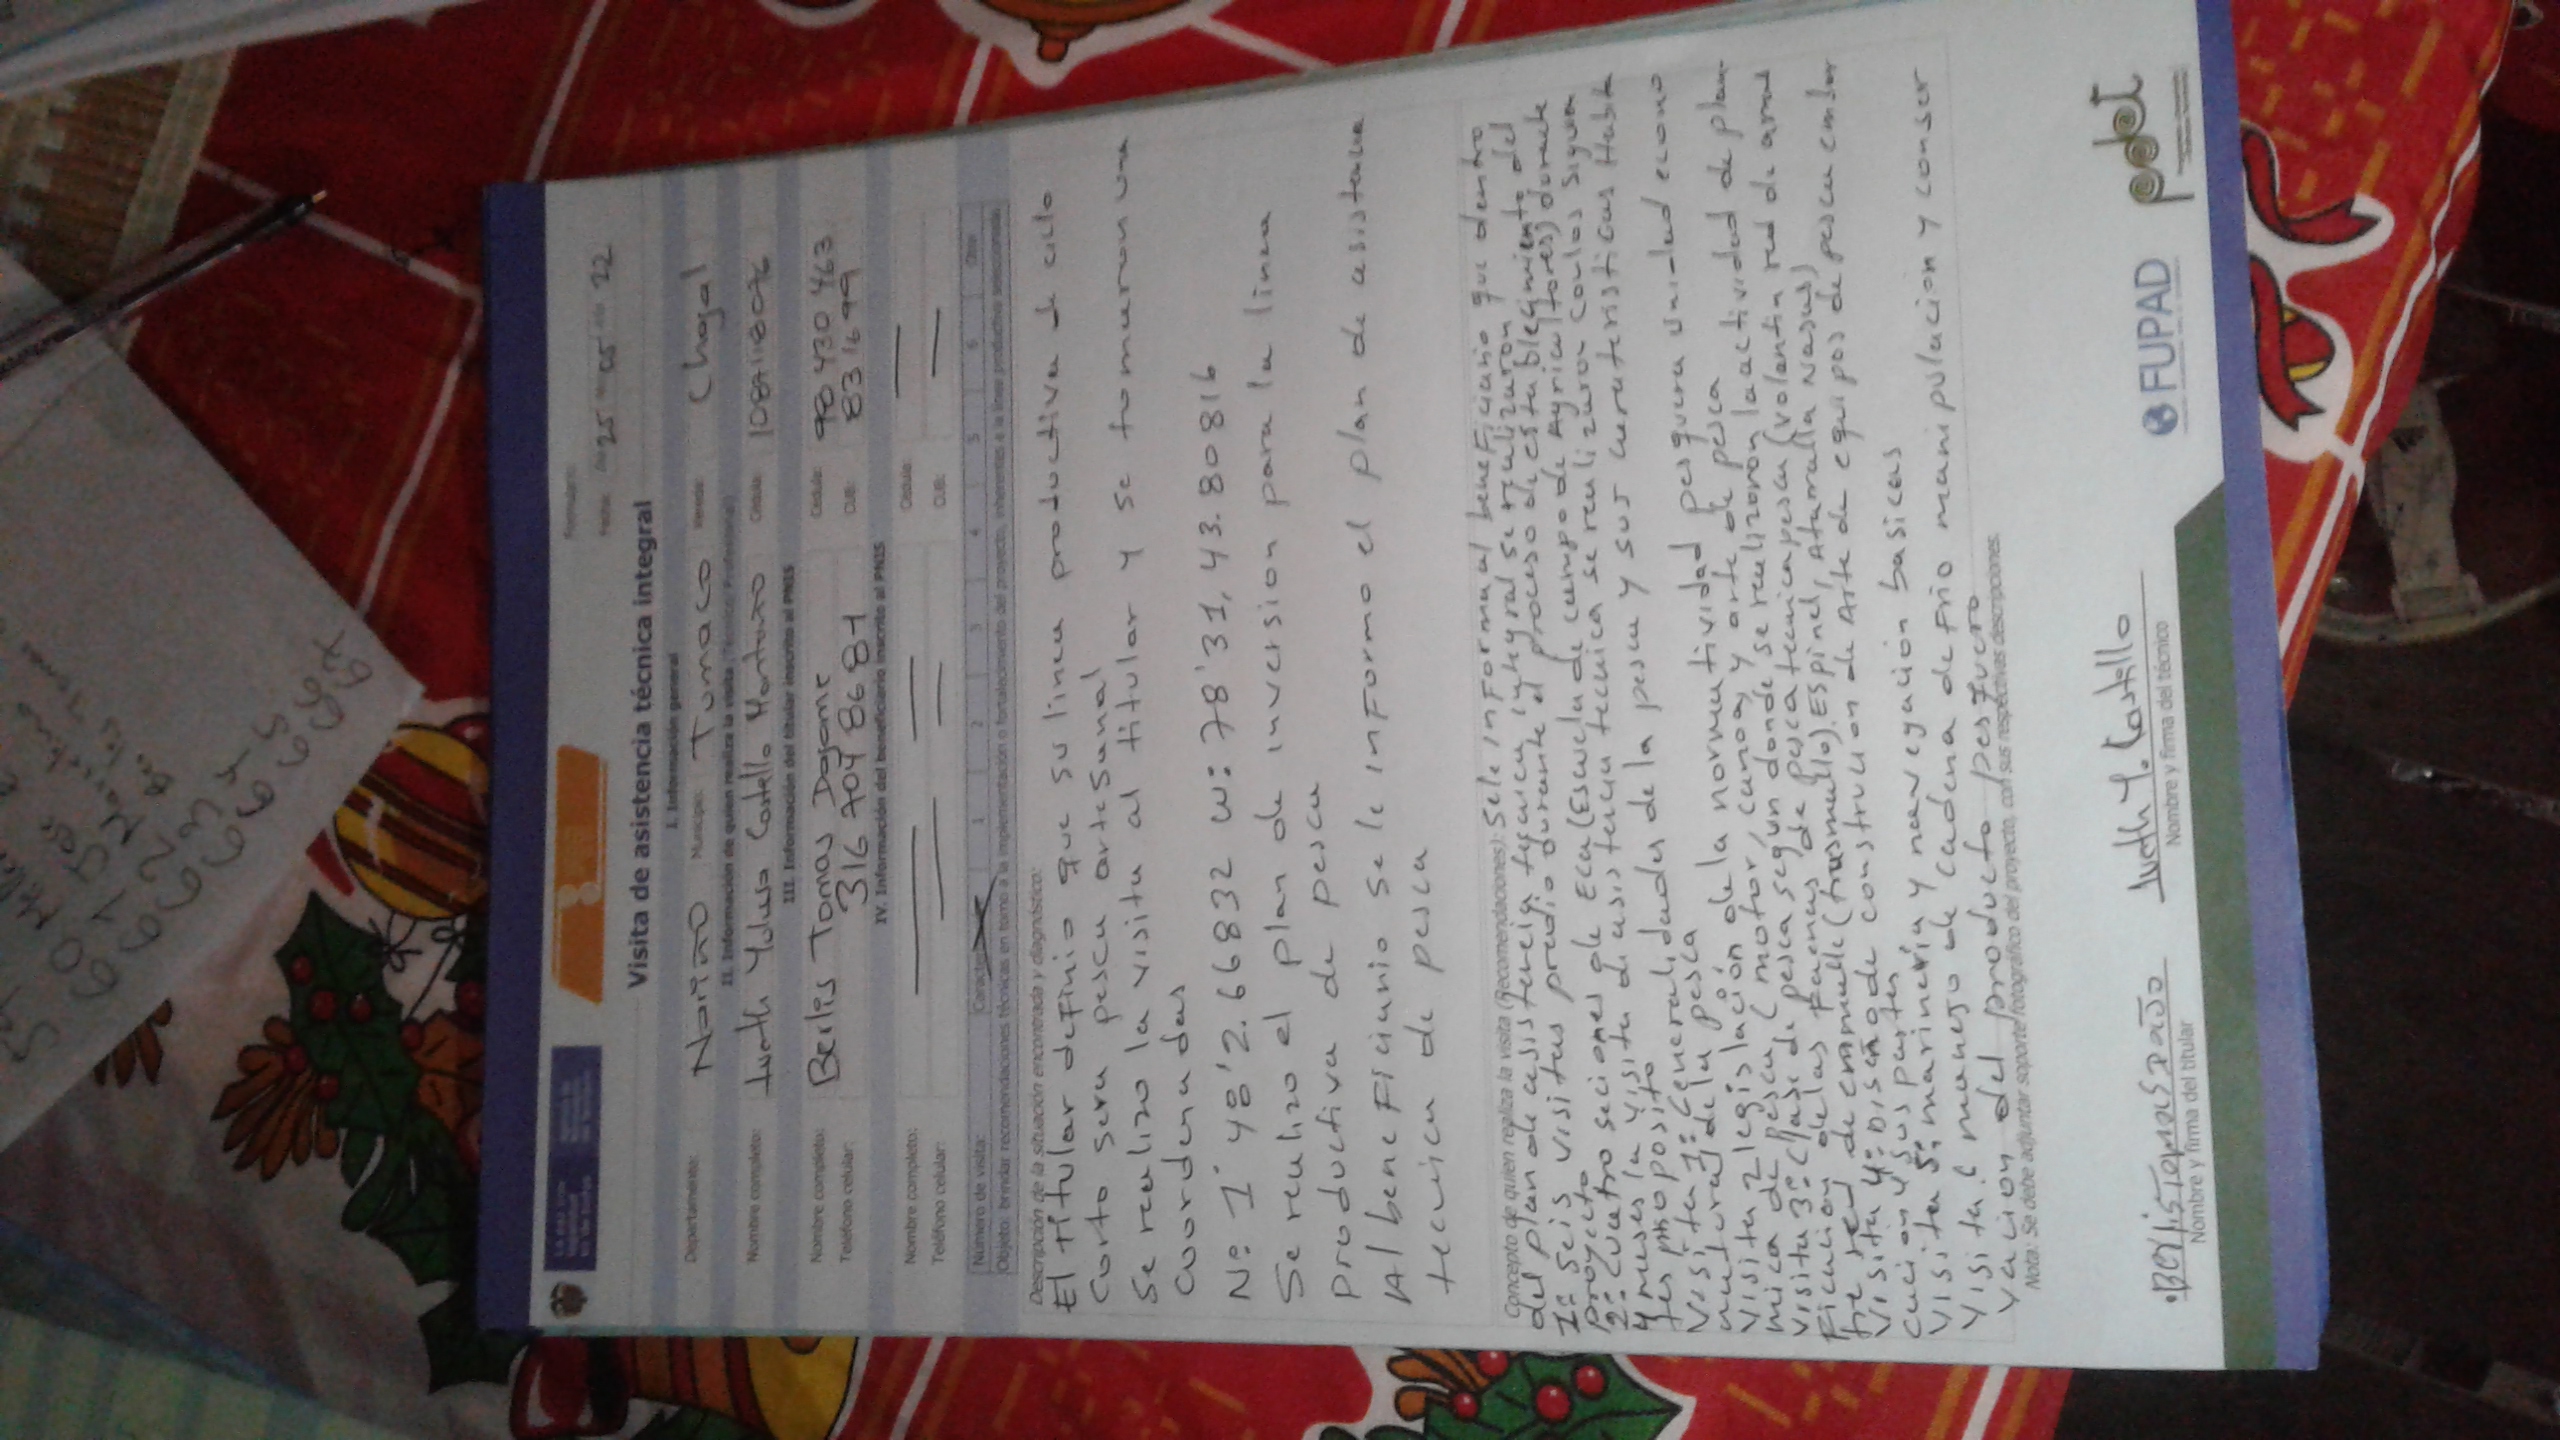 Formulario:
Fecha: 25 05 22
Visita de asistencia técnica integral
I. Información general
Departamento: Nariño Municipio: Tumaco Vereda: Chajal
II. Información de quien realiza la visita (Técnico Profesional)
Nombre completo: Castillo Montaño Cédula:
III. Información del titular inscrito al PNIS
Nombre completo: Berlis Tomas Dajome Cédula: 98 430 463
Teléfono celular: 316 704 8681 CUB: 83 16 99
IV. Información del beneficiario inscrito al PNIS
Nombre completo: Cédula:
Teléfono celular: CUB:
Número de visita: 1 2 3 4 5 6 Otra
Objeto: brindar recomendaciones técnicas en torno a la implementación o fortalecimiento del proyecto, inherentes a la línea productiva
Descripción de la situación encontrada y diagnóstico:
El titular definio que su linea productiva de ciclo
corto sera pesca artesanal
Se realizo la visita al titular y se tomaron una
coordenadas
N: 1° 40' 2.66832 W: 78' 31, 43.80816
Se realizo el plan de inversion para la linea
productiva de pesca
Al beneficiario se le informo el plan de asistencia
tecnica de pesca
Concepto de quien realiza la visita (Recomendaciones): Se le informa al beneficiario que dentro
del plan de asistencia tecnica integral se realizaron
1: Seis visitas predio durante el proceso de establecimiento del
proyecto
2: Cuatro seciones de Eca (Escuela de campo de Agricultores) durante
4 meses la visita de asistencia tecnica se realizaron con los siguien
tes proposito
Visita 1: Generalidades de la pesca y sus caracteristicas Habita
natural de la pesca
Visita 2 legislación de la normatividad pesquera unidad econo
mica de pesca (motor, canoa y arte de pesca
Visita 3: Clase de pesca según donde se realizaron la actividad de plan-
ficacion de las faenas de pesca tecnica pesca (volantin red de arras
tre red de enmalle (trasmallo). Espinel, Atarralla Nasas)
Visita 4: Diseño de construcion de Arte de equipos de pesca embar
cacion y sus partes
Visita 5: marineria y navegacion basicas
Visita 6 manejo de cadena de frio manipulacion y conser
vacion del producto pesquero
Nota: Se debe adjuntar soporte fotográfico del proyecto, con sus respectivas descripciones.
Nombre y firma del titular
Y. Castillo
Nombre y firma del técnico
FUPAD
pdet